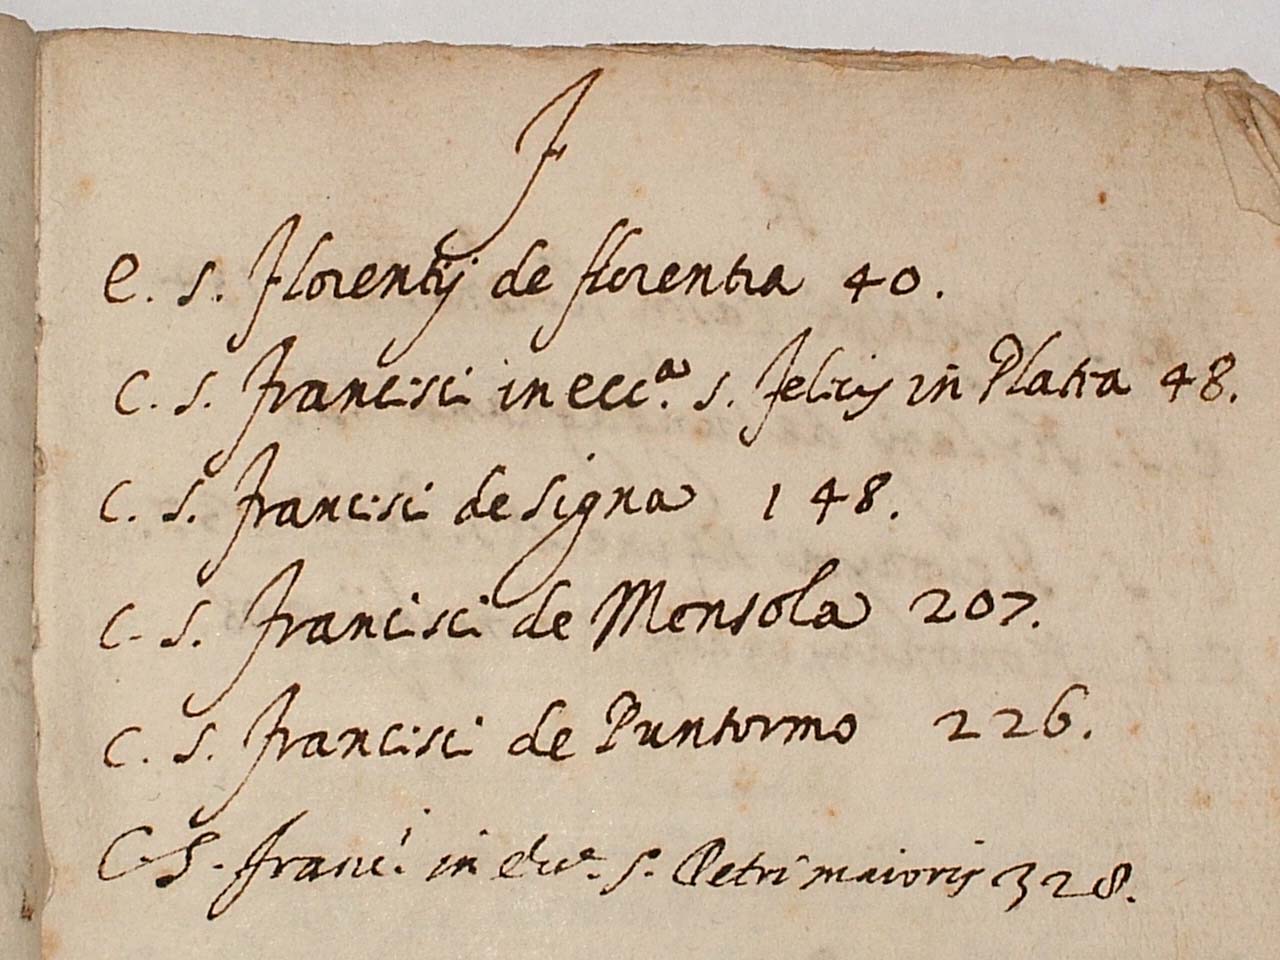 F
E. S. Florentij de florentia 40.
C. S. Francisci in ecc.ª S. Felicis in Platea 48.
C. S. Francisci de Signa 148.
C. S. Francisci de Monsola 207.
C. S. Francisci de Puntormo 226.
C. S. Franc.i in ecc.ª S. Petri maioris 328.